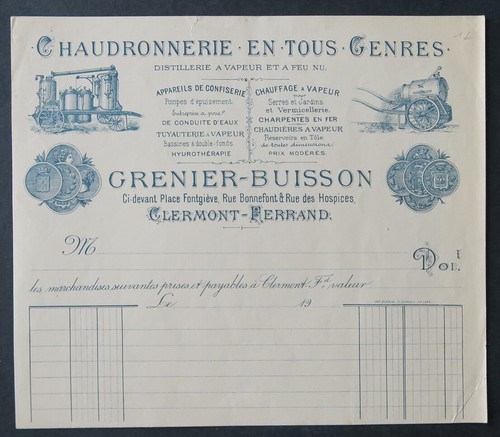 CHAUDRONNERIE · EN · TOUS · GENRES ·
DISTILLERIE A VAPEUR ET A FEU NU.
APPAREILS DE CONFISERIE
Pompes d'épuisement.
DE CONDUITE D'EAUX
TUYAUTERIE A VAPEUR
Bassines à double-fonds.
HYDROTHÉRAPIE
CHAUFFAGE A VAPEUR
pour
Serres et Jardins
et Vermicellerie.
CHARPENTES EN FER
CHAUDIÈRES A VAPEUR
Réservoirs en Tôle
de toutes dimensions
PRIX MODÉRÉS.
GRENIER-BUISSON
Ci-devant Place Fontgiève, Rue Bonnefont & Rue des Hospices,
CLERMONT-FERRAND.
M
DOIT
les marchandises suivantes prises et payables à Clermont Fd valeur
Le 19